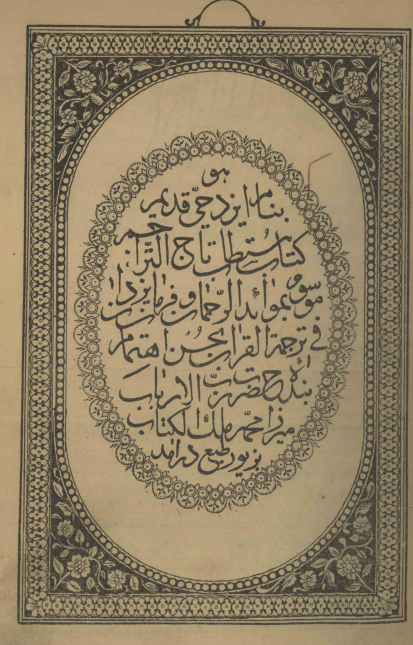 هو
بنام ایزد حیّ قدیم
کتاب مستطاب تاج التراجم
موسوم بموائد الرحمان و فرمان یزدان
فی ترجمة القران بحسن اهتمام
بنده حضرت ربّ الارباب
میرزا محمد ملک الکتاب
بزیور طبع درآمد